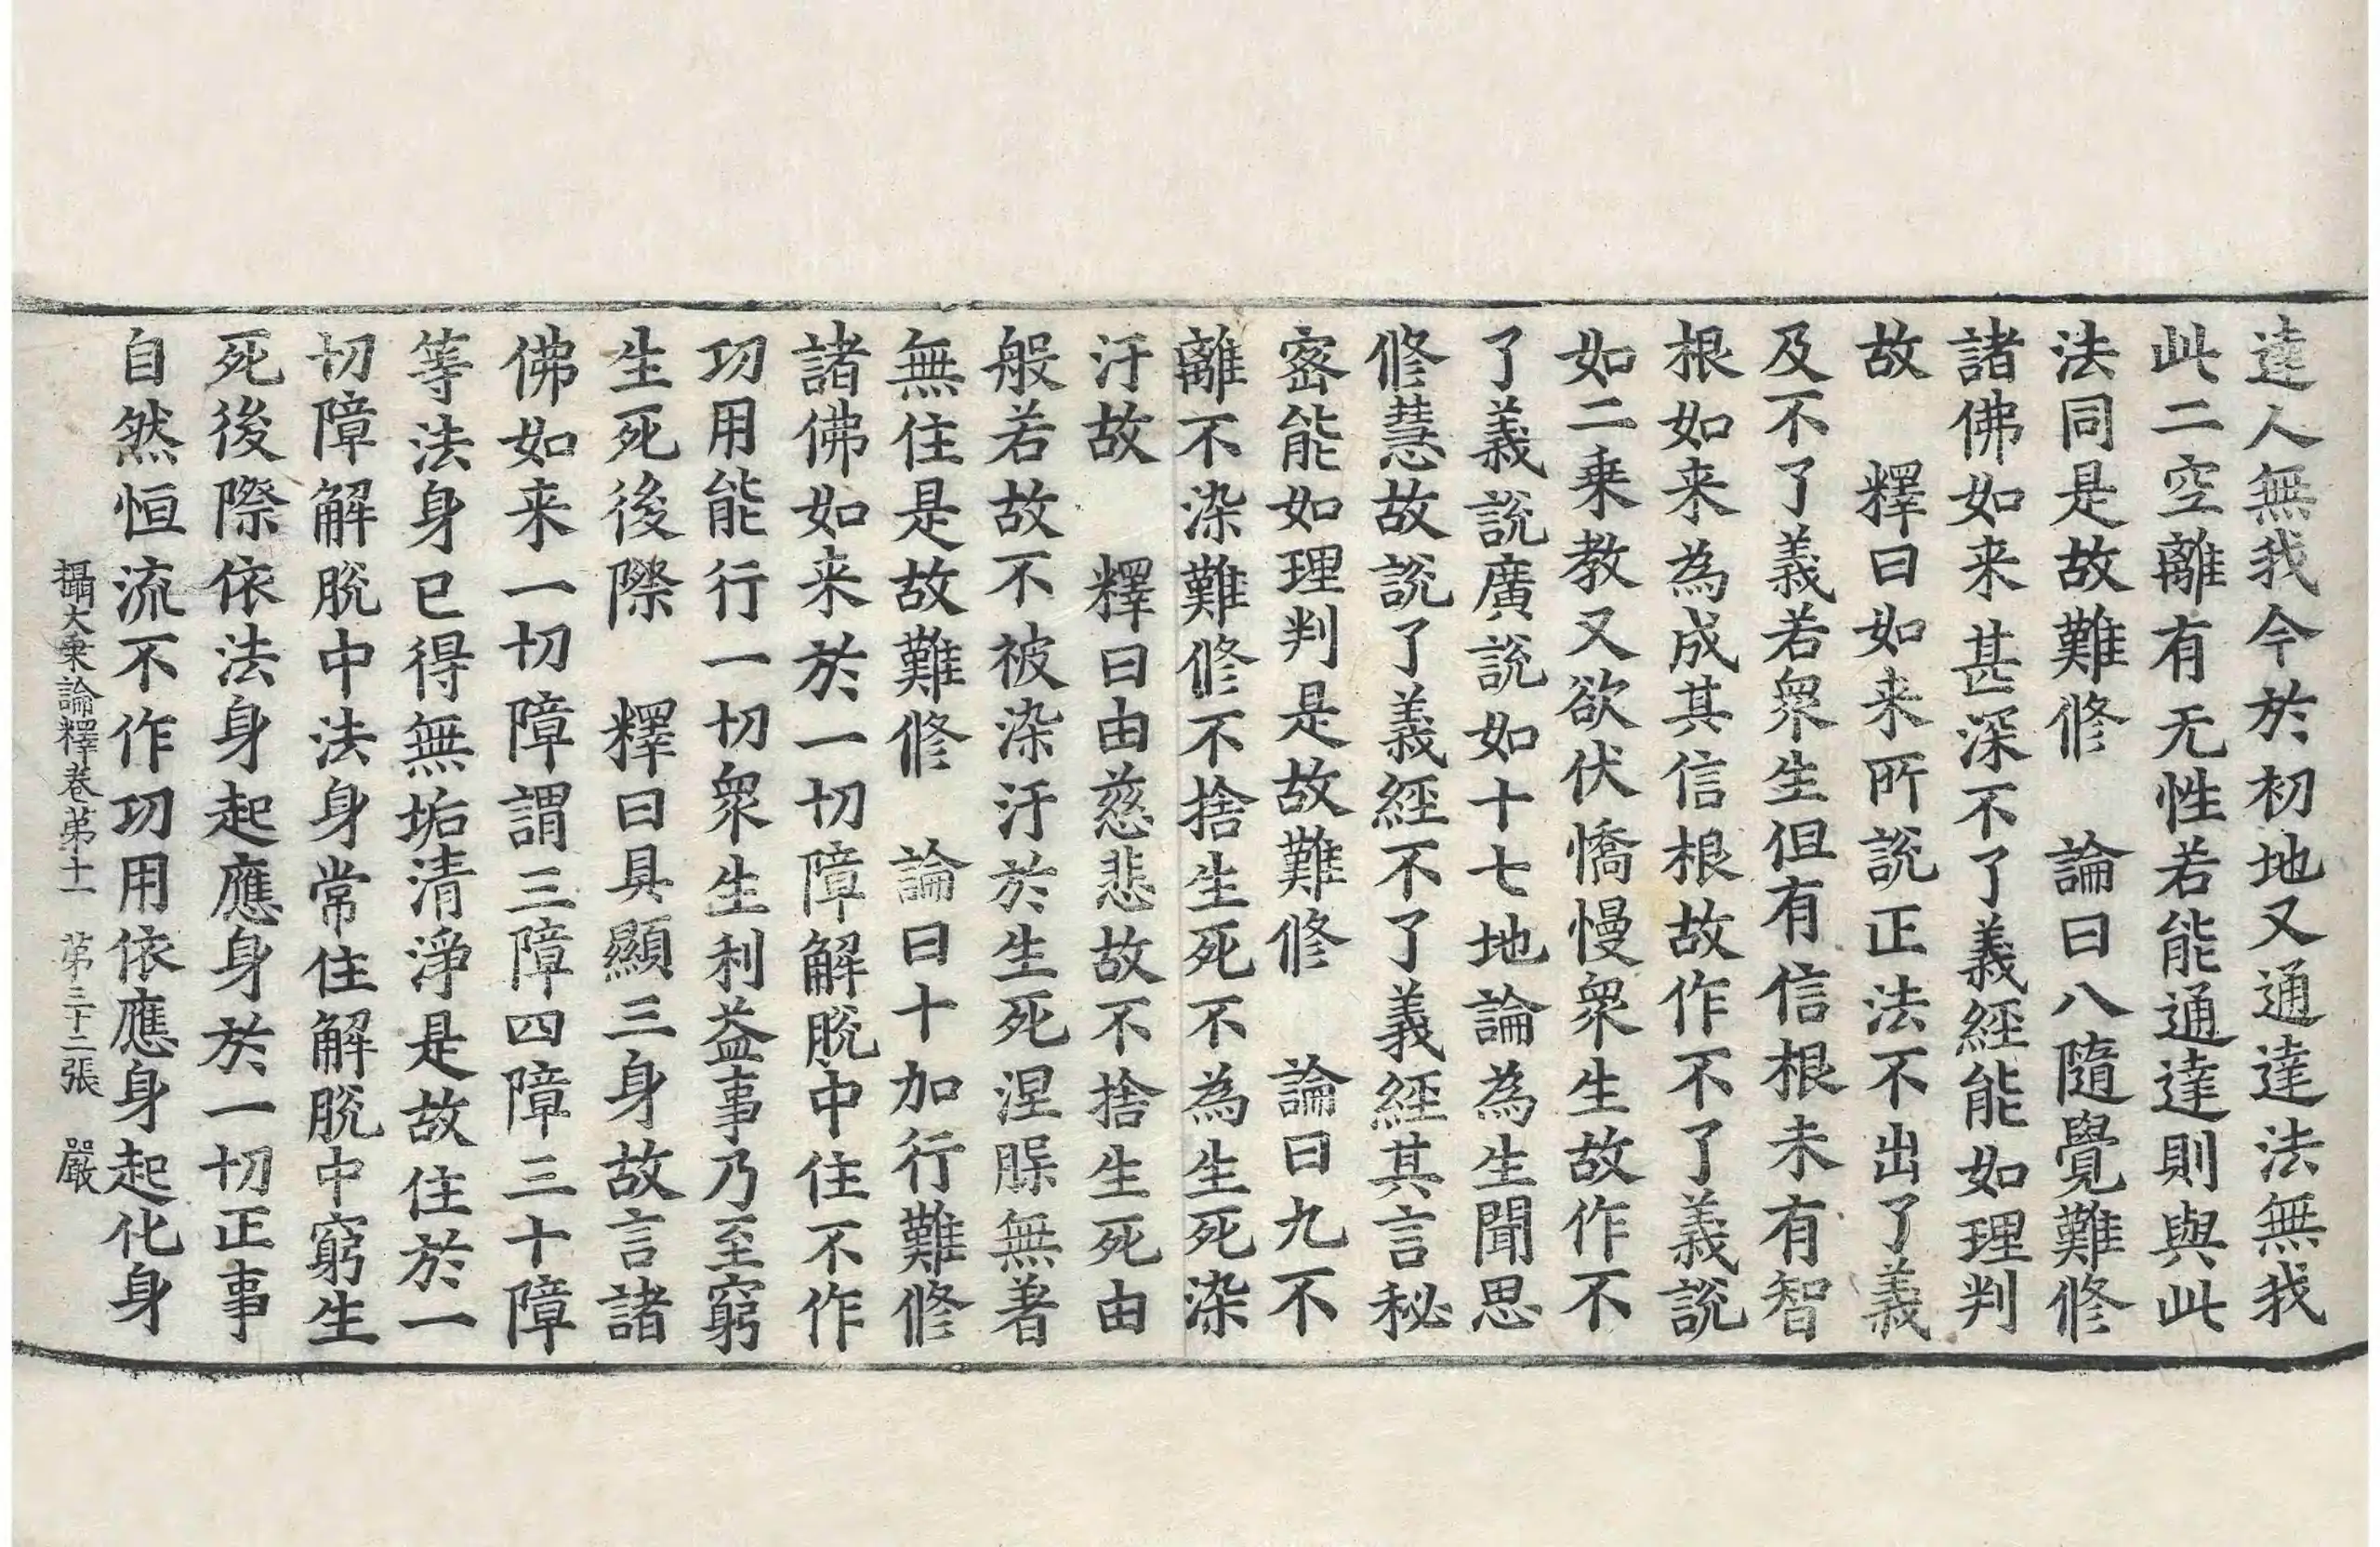 達人無我今於初地又通達法無我
此二空離有无性若能通達則與此
法同是故難修　論曰八隨覺難修
諸佛如来甚深不了義經能如理判
故　釋曰如来所說正法不出了義
及不了義若衆生但有信根未有智
根如来為成其信根故作不了義說
如二乗教又欲伏憍慢衆生故作不
了義說廣說如十七地論為生聞思
修慧故說了義經不了義經其言秘
宻能如理判是故難修　論曰九不
離不染難修不捨生死不為生死染
汙故　釋曰由慈悲故不捨生死由
般若故不被染汙於生死涅槃無著
無住是故難修　論曰十加行難修
諸佛如来於一切障解脫中住不作
功用能行一切衆生利益事乃至窮
生死後際　釋曰具顯三身故言諸
佛如来一切障謂三障四障三十障
等法身已得無垢清淨是故住於一
切障解脫中法身常住解脫中窮生
死後際依法身起應身於一切正事
自然恒流不作功用依應身起化身
攝大乗論釋卷第十一　第三十二張　嚴